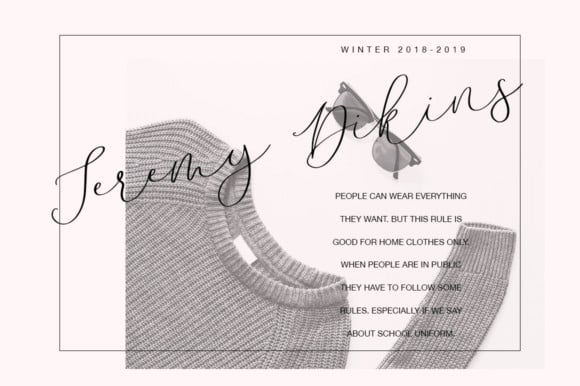 WINTER 2018-2019
Jeremy Dikins
PEOPLE CAN WEAR EVERYTHING
THEY WANT. BUT THIS RULE IS
GOOD FOR HOME CLOTHES ONLY.
WHEN PEOPLE ARE IN PUBLIC
THEY HAVE TO FOLLOW SOME
RULES. ESPECIALLY IF WE SAY
ABOUT SCHOOL UNIFORM.